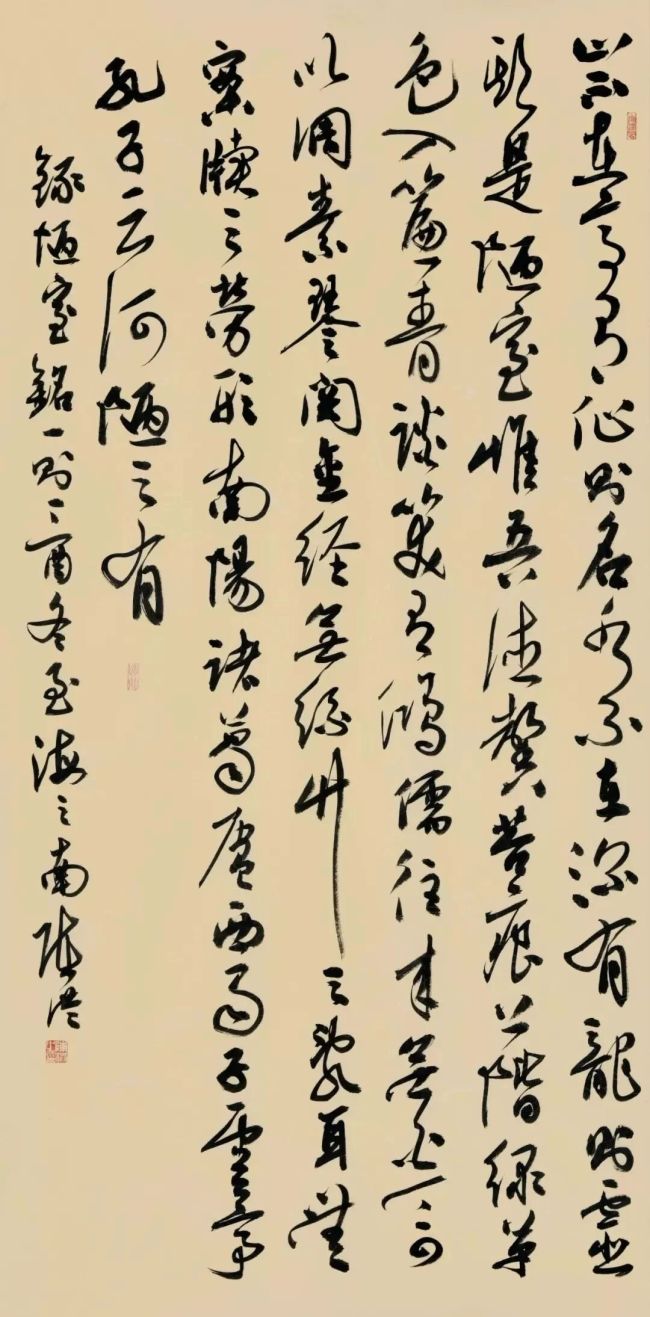 山不在高有仙則名水不在深有龍則靈
斯是陋室惟吾德馨苔痕上階綠草
色入簾青談笑有鴻儒往來無白丁可
以調素琴閱金經無絲竹之亂耳無
案牘之勞形南陽諸葛廬西蜀子雲亭
孔子云何陋之有
錄陋室銘一則丁酉冬至海之南